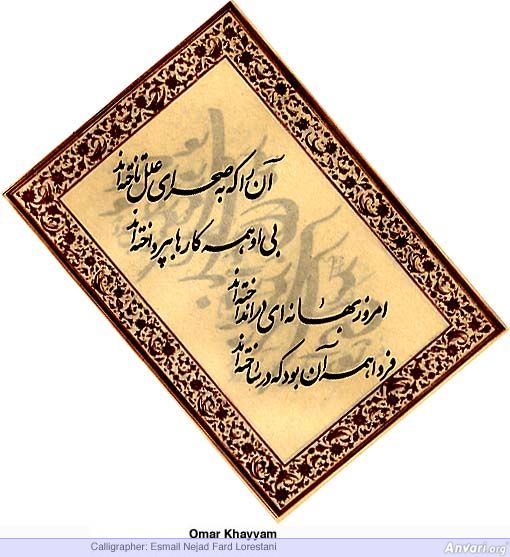 آن را که به صحرای علل تاخته‌اند
بی او همه کارها بپرداخته‌اند
امروز بهانه‌ای در انداخته‌اند
فردا همه آن بود که در ساخته‌اند
Omar Khayyam
Calligrapher: Esmail Nejad Fard Lorestani
Anvari.org